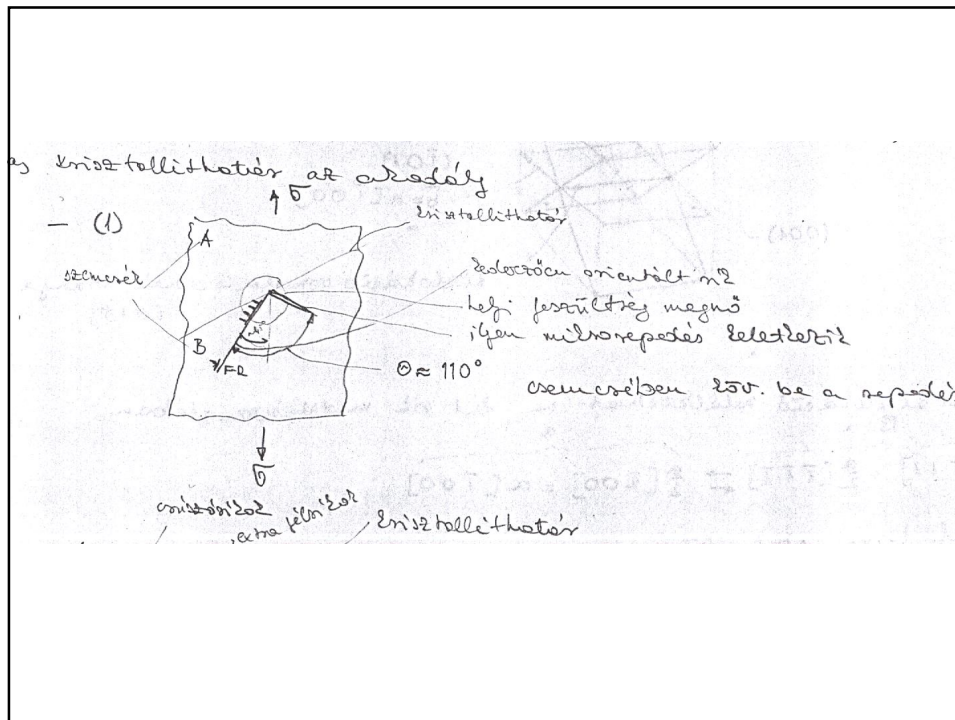 krisztallithatár az akadály
σ
— (1)
krisztallithatár
A
szemcsék
kedvezően orientált sík
helyi feszültség megnő
ilyen mikrorepedés keletkezik
B
FR
Θ ≈ 110°
szemcsében köv. be a repedés
σ
csúszósíkok
extra félsíkok
krisztallithatár
(001)